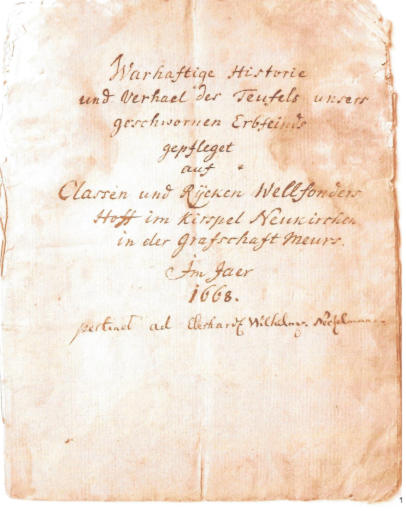 Warhaftige Historie
und Verhael des Teufels unsers
geschwornen Erbfeinds
gepfleget
auf
Classen und Rÿcken Wellfonders
Hoff im Kirspel Neukirchen
in der Grafschaft Meurs.
Im Jaer
1668.
pertinet ad Eberhard Wilhelm
1